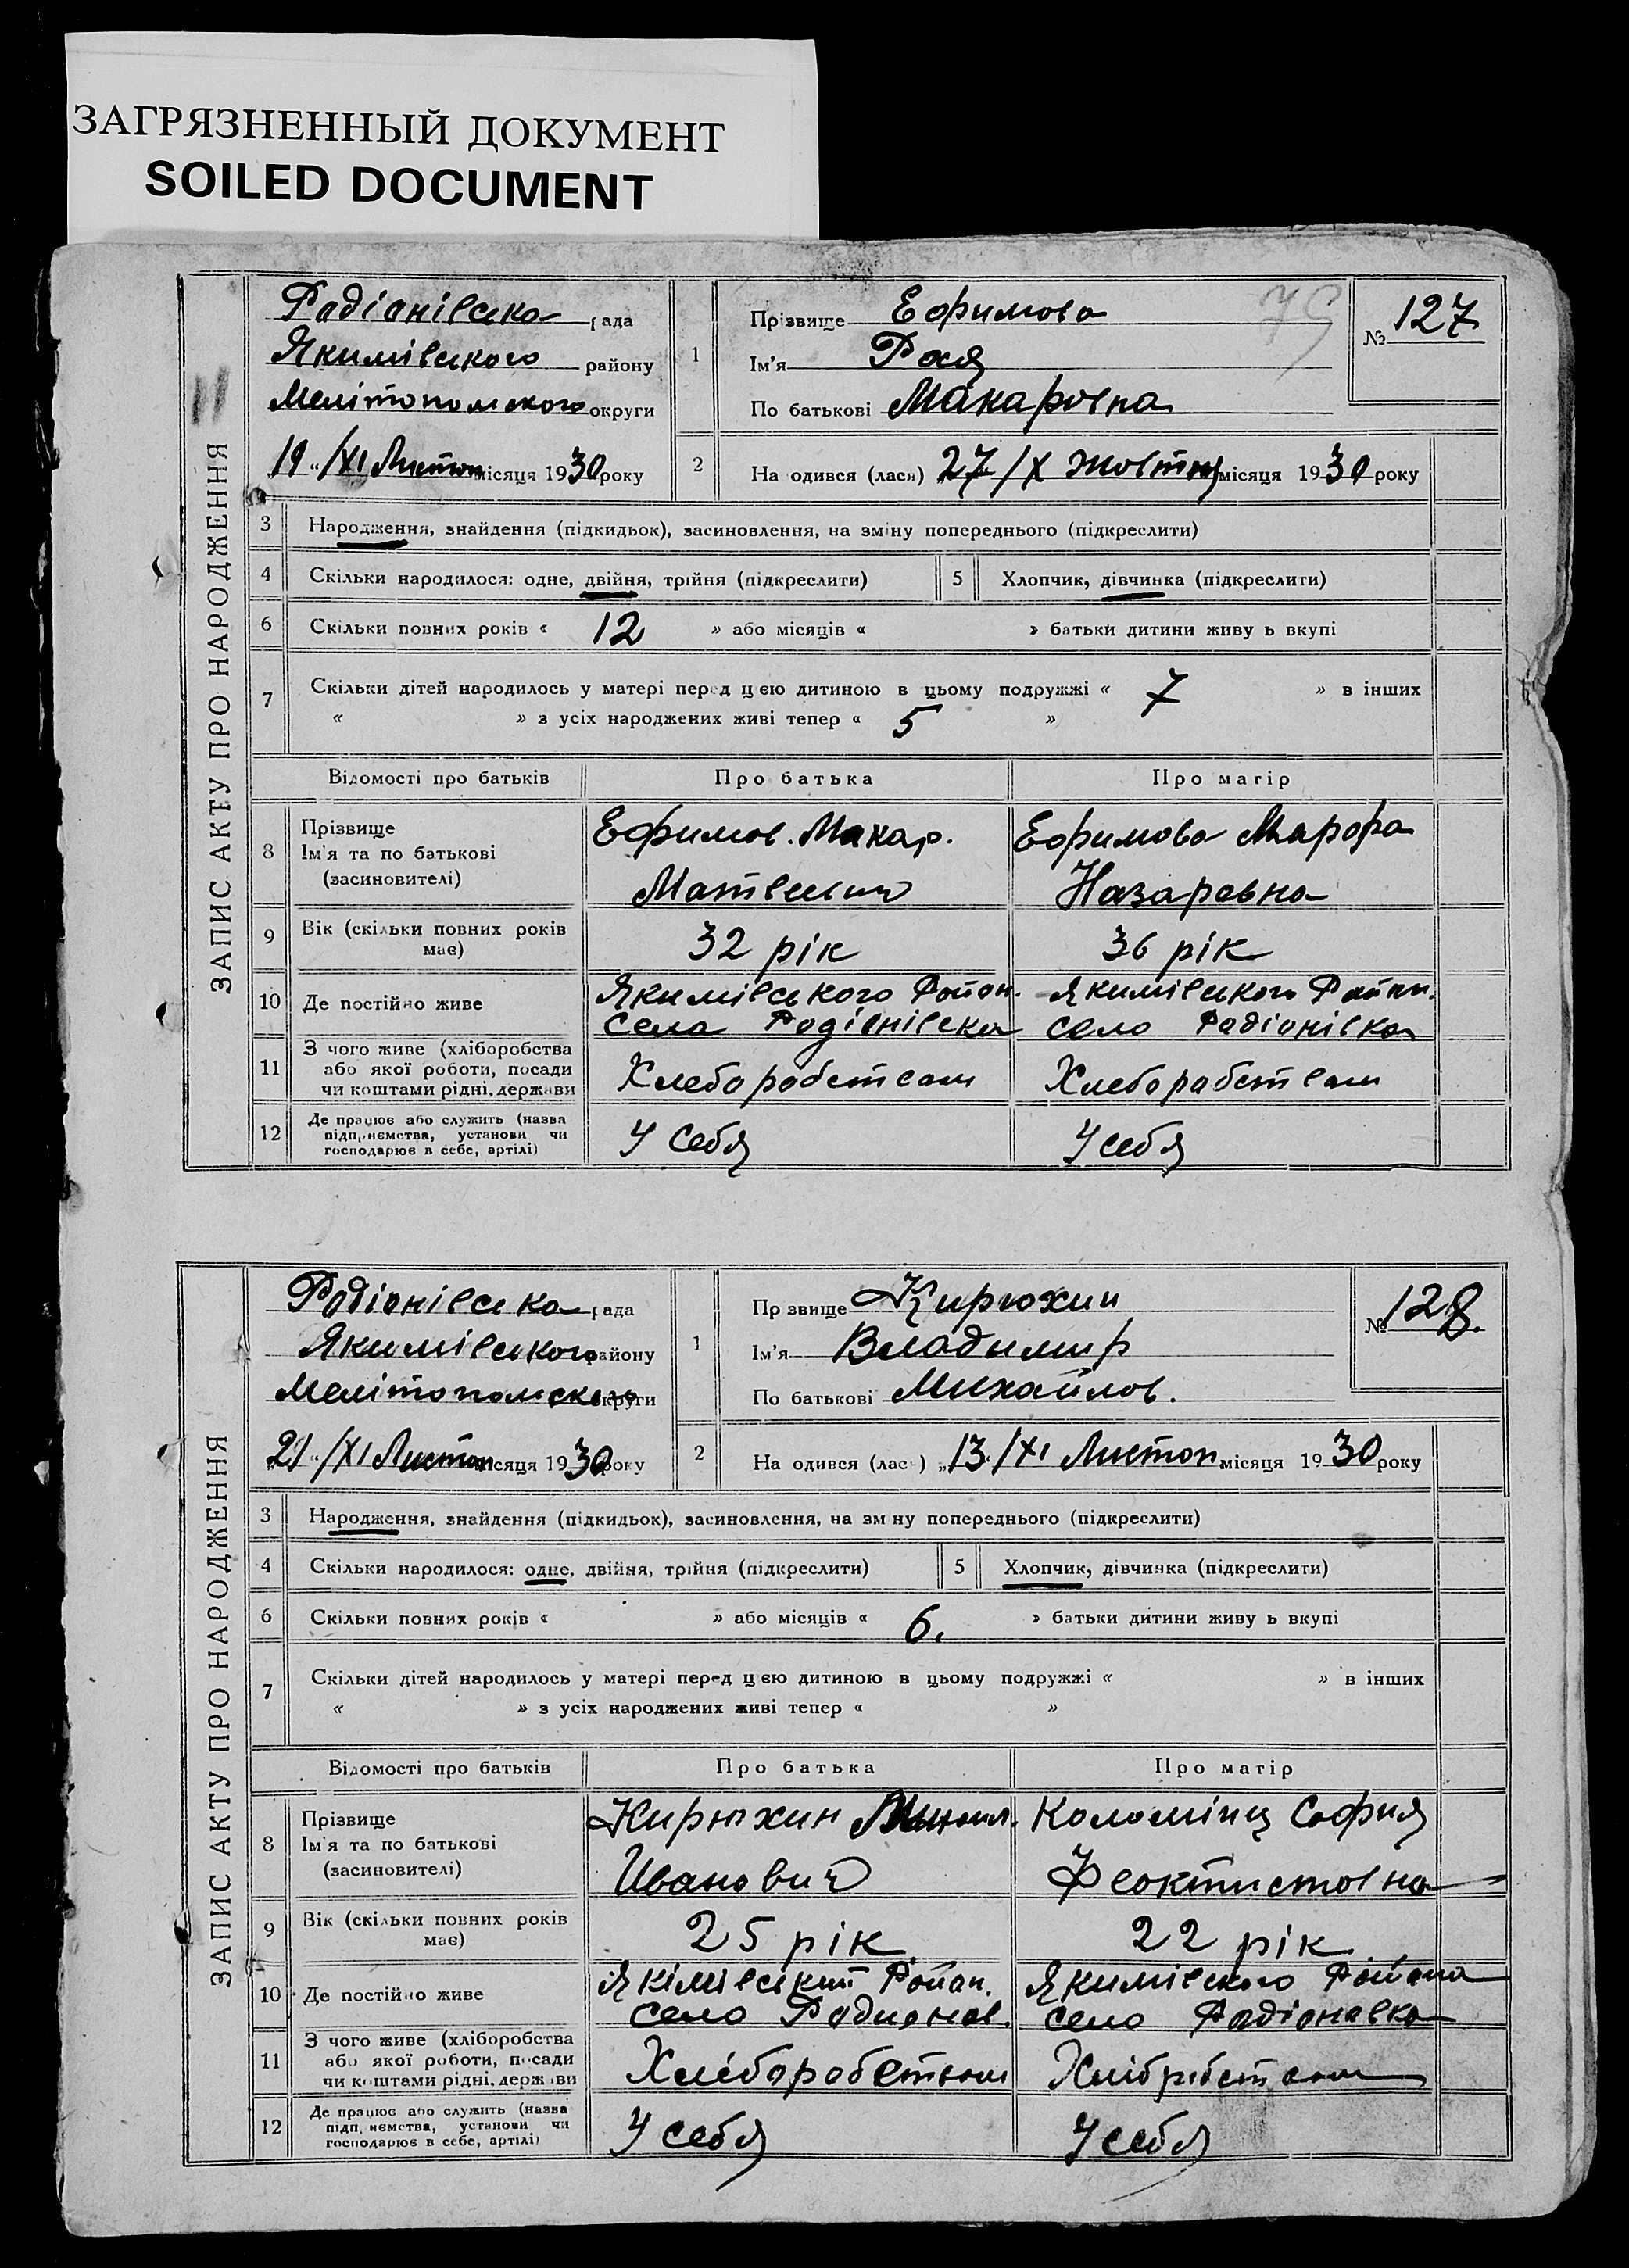 ЗАГРЯЗНЕННЫЙ ДОКУМЕНТ
SOILED DOCUMENT
ЗАПИС АКТУ ПРО НАРОДЖЕННЯ
11
Радіонівська рада
Якимівського району
Мелітопольского округи
19 /XI Листоп місяця 1930 року
1
Прізвище Ефимова
Ім'я Рая
По батькові Макаровна
75
№ 127
2
На одився (лася) 27/X Жовтня місяця 1930 року
3 Народження, знайдення (підкидьок), засиновлення, на зміну попереднього (підкреслити)
4 Скільки народилося: одне, двійня, трійня (підкреслити) 5 Хлопчик, дівчинка (підкреслити)
6 Скільки повних років « 12 » або місяців « » батьки дитини живу ь вкупі
7 Скільки дітей народилось у матері перед цією дитиною в цьому подружжі « 7 » в інших
« » з усіх народжених живі тепер « 5 »
Відомості про батьків Про батька Про матір
8 Прізвище
Ім'я та по батькові
(засиновителі)
Ефимов. Макар.
Матвеевич
Ефимова Марфа
Назаровна
9 Вік (скільки повних років
має)
32 рік 36 рік
10 Де постійно живе
Якимівського Район.
села Радіонівка
Якимівського Район.
село Радіонівка
11 З чого живе (хліборобства
або якої роботи, посади
чи коштами рідні, держави
Хлеборобством Хлеборобством
12 Де працює або служить (назва
підприємства, установи чи
господарює в себе, артілі)
У себя У себя
ЗАПИС АКТУ ПРО НАРОДЖЕННЯ
Радіонівська рада
Якимівського району
Мелітопольского округи
„21“ /XI Листоп місяця 1930 року
1
Пр звище Кирюхин
Ім'я Владимир
По батькові Михайлов.
№ 128.
2
На одився (лас ) „13“/XI Листоп місяця 1930 року
3 Народження, знайдення (підкидьок), засиновлення, на зм ну попереднього (підкреслити)
4 Скільки народилося: одне, двійня, трійня (підкреслити) 5 Хлопчик, дівчинка (підкреслити)
6 Скільки повних років « » або місяців « 6. » батьки дитини живу ь вкупі
7 Скільки дітей народилось у матері перед цією дитиною в цьому подружжі « » в інших
« » з усіх народжених живі тепер « »
Відомості про батьків Про батька Про матір
8 Прізвище
Ім'я та по батькові
(засиновителі)
Кирюхин Михаил.
Иванович
Коломіиц София
Феоктистовна
9 Вік (скільки повних років
має)
25 рік 22 рік
10 Де постійно живе
Якімівський Район.
село Родионов.
Якимівского Района
село Радіоновка
11 З чого живе (хліборобства
або якої роботи, посади
чи коштами рідні, держ ви
Хлеборобством Хлібробством
12 Де працює або служить (назва
підп. иємства, установи чи
господарює в себе, артілі)
У себя У себя